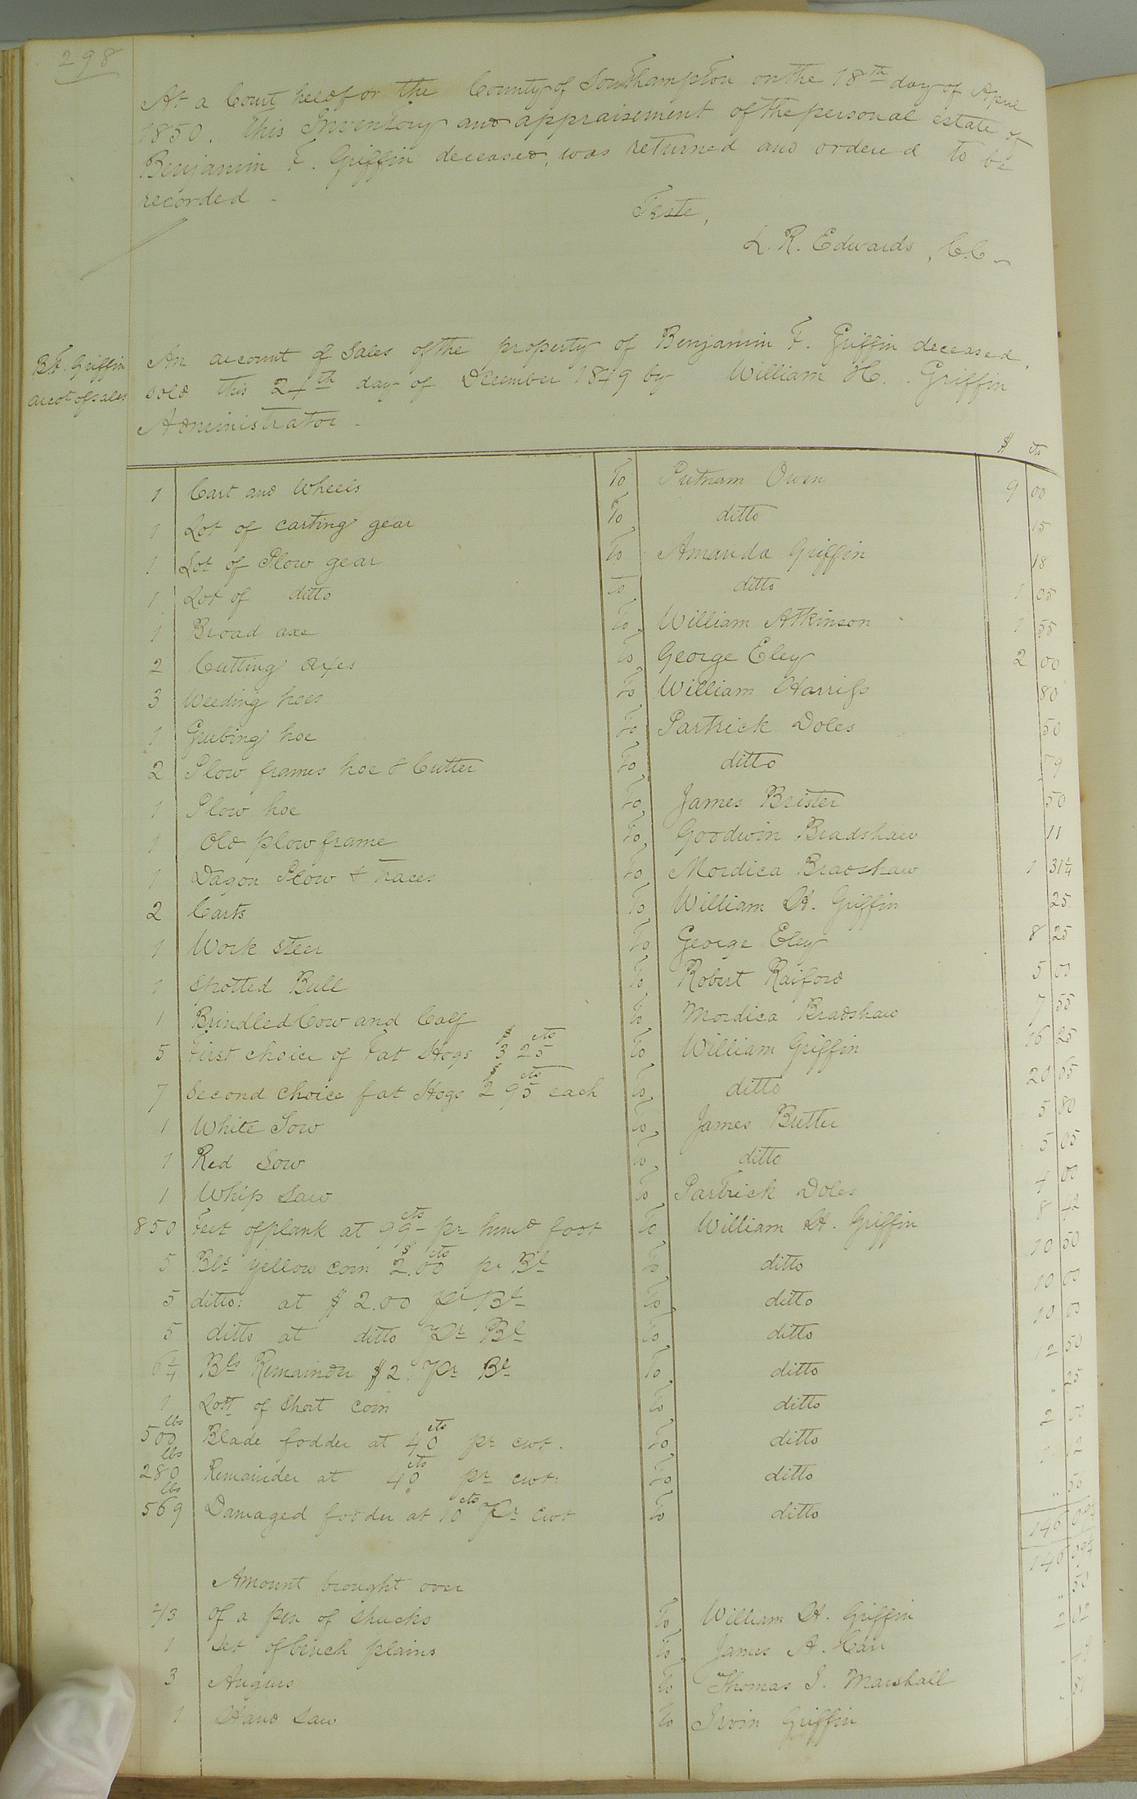 298
At a Court held for the County of Southampton on the 18th day of April
1850. This Inventory and appraisement of the personal estate of
Benjamin F. Griffin deceased, was returned and ordered to be
recorded -
Teste,
L. R. Edwards, C.C.
B.F. Griffin
accot of sales
An account of Sales of the property of Benjamin F. Griffin deceased,
sold this 24th day of December 1849 by William H. Griffin
Administrator -
$ cts
1 Cart and Wheels To Putnam Owen 9 00
1 Lot of carting gear To ditto 15
1 Lot of Plow gear To Amanda Griffin 18
1 Lot of ditto to ditto 1 05
1 Broad axe To William Atkinson 1 55
2 Cutting axes To George Eley 2 00
3 Weeding hoes To William Harriss 80
1 Grubing hoe To Partrick Doles 50
2 Plow frames hoe & Cutter To ditto 79
1 Plow hoe To James Brister 50
1 Old plow frame To Goodwin Bradshaw 11
1 Dagon Plow & traces To Mordica Bradshaw 1 31¼
2 Carts To William H. Griffin 25
1 Work steer To George Eley 8 25
1 Spotted Bull To Robert Raiford 5 00
1 Brindled Cow and Calf To Mordica Bradshaw 7 55
5 First choice of Fat Hogs $3 25cts To William Griffin 16 25
7 Second choice fat Hogs $2 95cts each To ditto 20 65
1 White Sow To James Butler 5 80
1 Red Sow To ditto 5 05
1 Whip Saw To Partrick Doles 4 00
850 Feet of plank at 99cts pr hund foot To William H. Griffin 8 42
5 Bls yellow corn $2.00cts pr Bl To ditto 10 50
5 ditto: at $2.00 Pr Bl To ditto 10 00
5 ditto at ditto Pr Bl To ditto 10 00
6¼ Bls Remainder $2. Pr Bl To ditto 12 50
1 Lott of Short corn To ditto " 25
500 lbs Blade fodder at 40cts pr cwt. To ditto 2 00
280 lbs Remainder at 40cts pr cwt. To ditto 1 12
569 lbs Damaged fodder at 10cts Pr cwt To ditto " 56
146
Amount brought over 146
2/3 of a pen of shucks To William H. Griffin " 50
1 Set of bench plains To James A. Carr 2
3 Augurs To Thomas J. Marshall
1 Hand Saw To Irvin Griffin